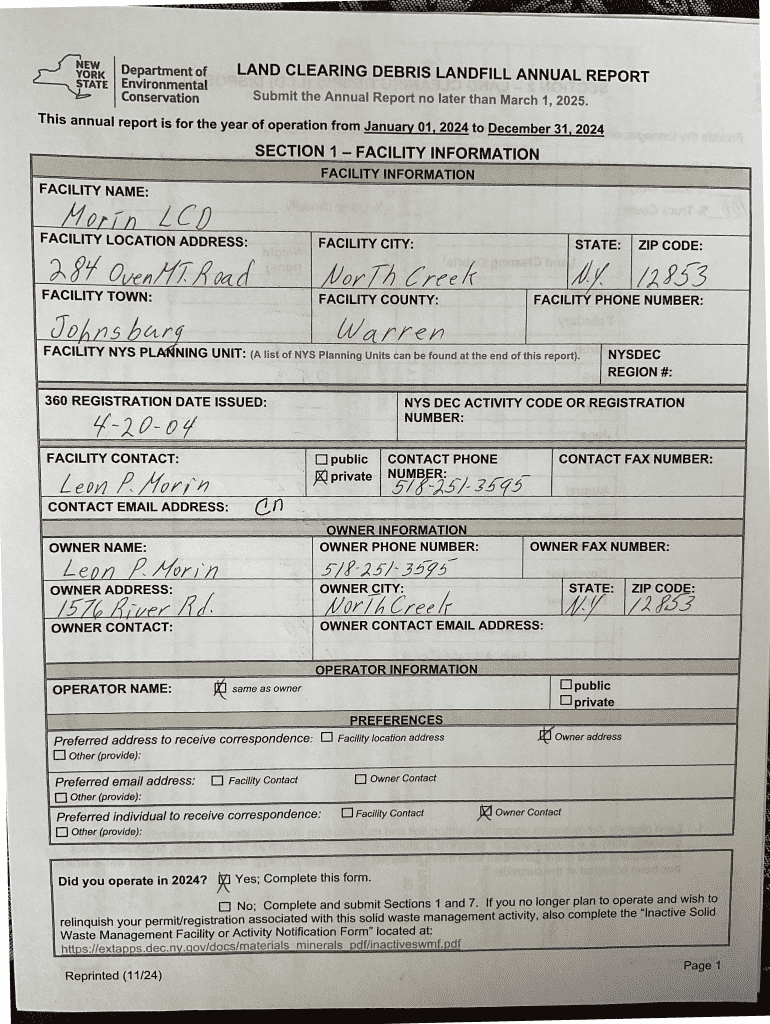 NEW YORK STATE
Department of Environmental Conservation
LAND CLEARING DEBRIS LANDFILL ANNUAL REPORT
Submit the Annual Report no later than March 1, 2025.
This annual report is for the year of operation from January 01, 2024 to December 31, 2024
SECTION 1 – FACILITY INFORMATION
FACILITY INFORMATION
FACILITY NAME:
Morin LCD
FACILITY LOCATION ADDRESS: FACILITY CITY: STATE: ZIP CODE:
284 Oven MT. Road North Creek N.Y. 12853
FACILITY TOWN: FACILITY COUNTY: FACILITY PHONE NUMBER:
Johnsburg Warren
FACILITY NYS PLANNING UNIT: (A list of NYS Planning Units can be found at the end of this report). NYSDEC REGION #:
360 REGISTRATION DATE ISSUED: NYS DEC ACTIVITY CODE OR REGISTRATION NUMBER:
4-20-04
FACILITY CONTACT: public CONTACT PHONE NUMBER: CONTACT FAX NUMBER:
Leon P. Morin private 518-251-3595
CONTACT EMAIL ADDRESS:
OWNER INFORMATION
OWNER NAME: OWNER PHONE NUMBER: OWNER FAX NUMBER:
Leon P. Morin 518-251-3595
OWNER ADDRESS: OWNER CITY: STATE: ZIP CODE:
1576 River Rd. North Creek N.Y 12853
OWNER CONTACT: OWNER CONTACT EMAIL ADDRESS:
OPERATOR INFORMATION
OPERATOR NAME: same as owner public
private
PREFERENCES
Preferred address to receive correspondence: Facility location address Owner address
Other (provide):
Preferred email address: Facility Contact Owner Contact
Other (provide):
Preferred individual to receive correspondence: Facility Contact Owner Contact
Other (provide):
Did you operate in 2024? Yes; Complete this form.
No; Complete and submit Sections 1 and 7. If you no longer plan to operate and wish to
relinquish your permit/registration associated with this solid waste management activity, also complete the “Inactive Solid
Waste Management Facility or Activity Notification Form” located at:
https://extapps.dec.ny.gov/docs/materials_minerals_pdf/inactiveswmf.pdf
Reprinted (11/24) Page 1